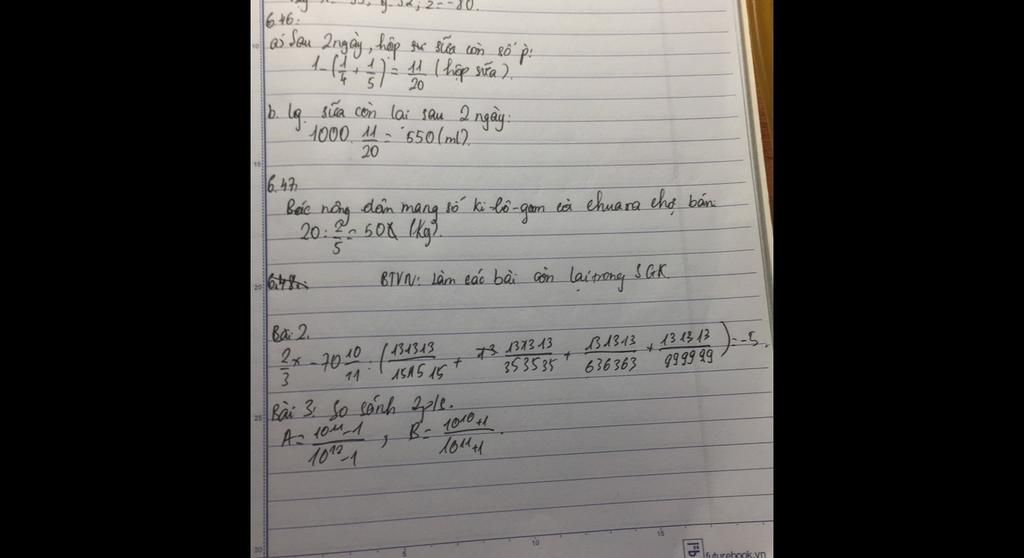 6.46:
a) Sau 2 ngày, hộp sữa còn số p:
1-(1/4+1/5)=11/20 (hộp sữa).
b. lg. sữa còn lại sau 2 ngày:
1000.11/20=550(ml).
6.47.
Bác nông dân mang số ki-lô-gam cà chua ra chợ bán
20:2/5=50 (kg).
6.48.
BTVN: Làm các bài còn lại trong SGK.
Bài 2.
2/3x-70 10/11:(131313/151515+131313/353535+131313/636363+131313/999999)=-5.
Bài 3: So sánh 2 p/s.
A=10^11-1/10^12-1, B=10^10+1/10^11+1.
10
15
20
25
30
5
10
15
futurebook.vn